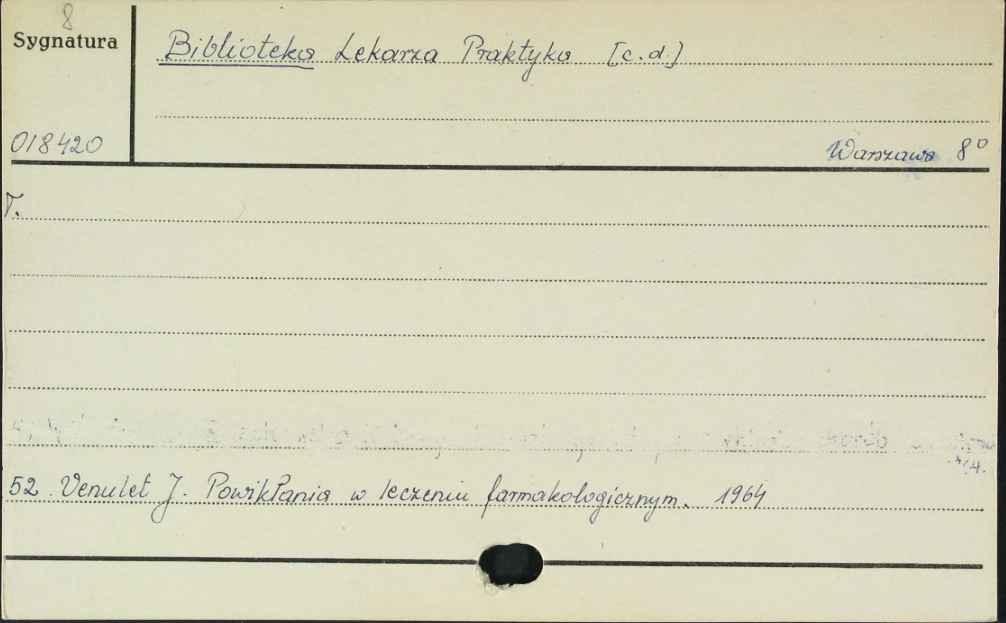 8
Sygnatura
Biblioteka Lekarza Praktyka [c.d.]
018420
Warszawa 8°
T.
52. Venulet J. Powikłania w leczeniu farmakologicznym. 1964